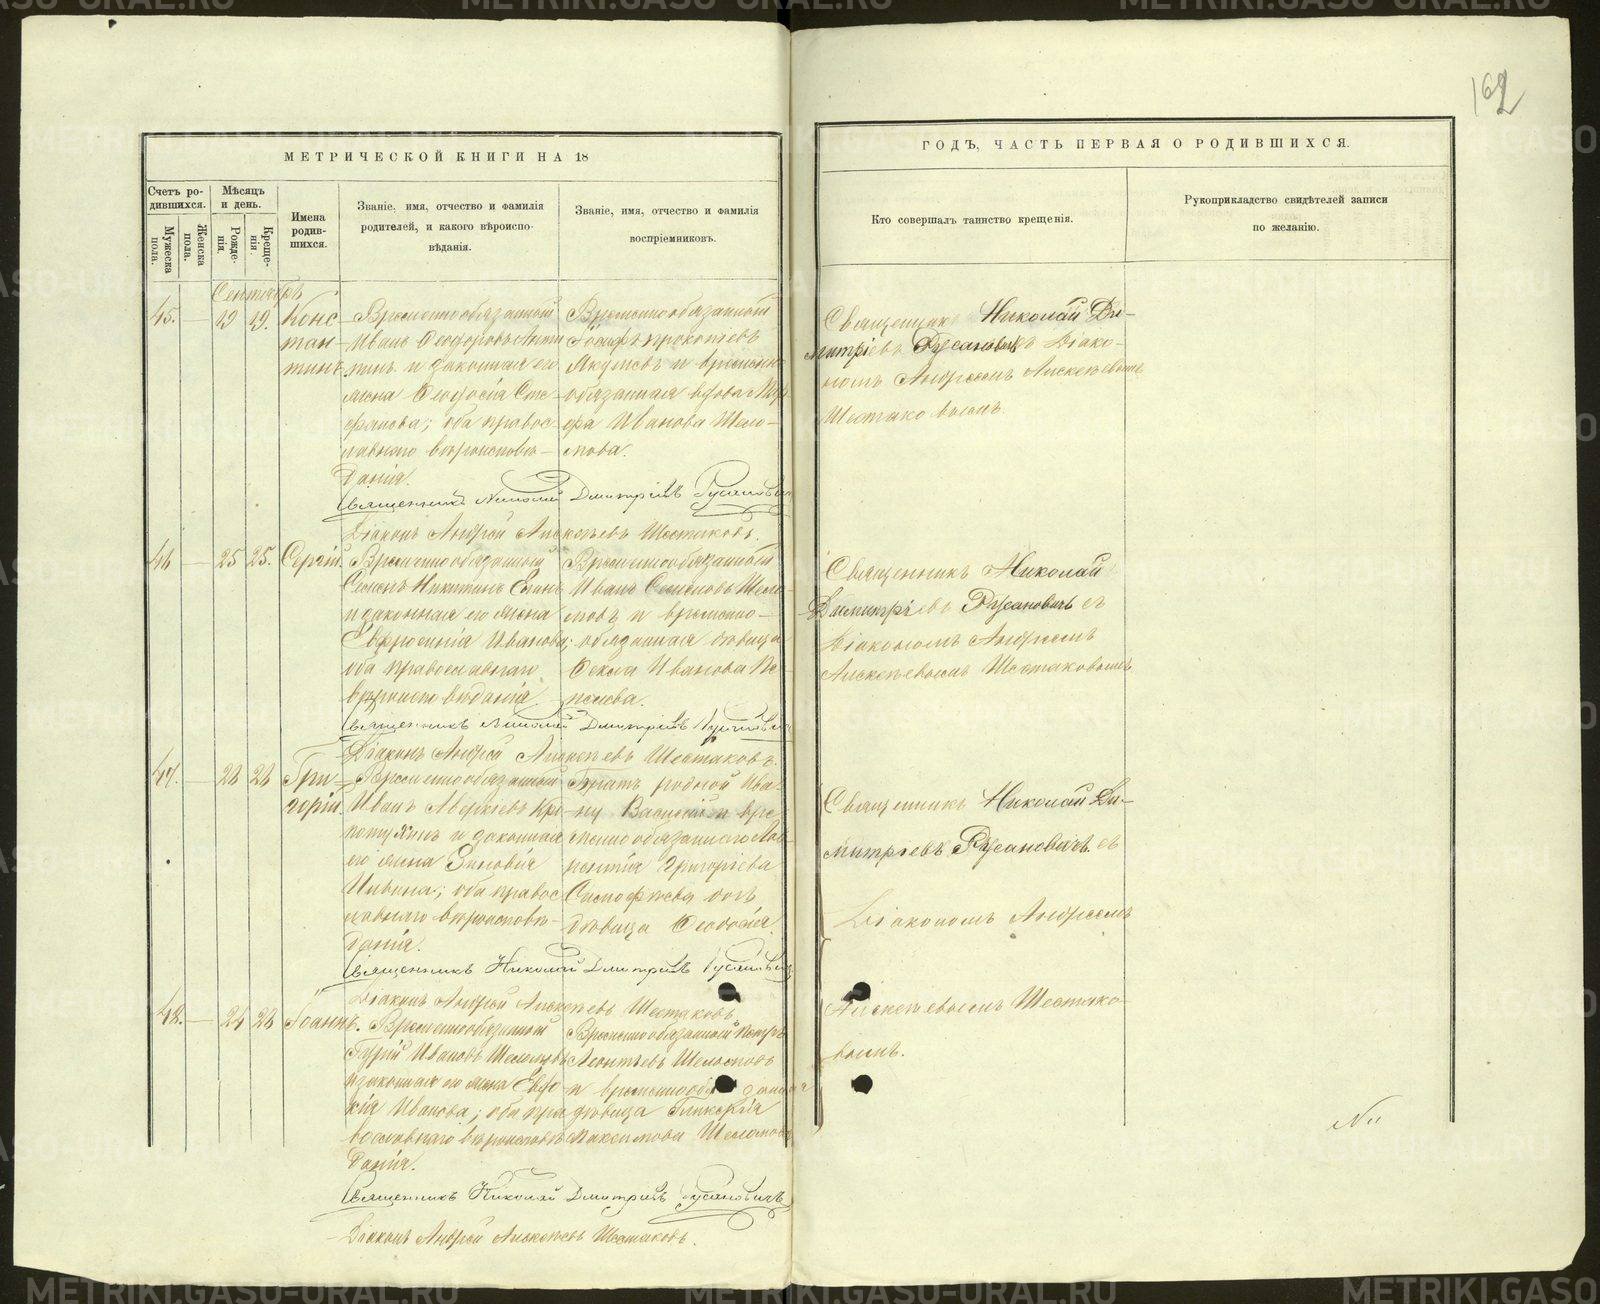 162
МЕТРИЧЕСКОЙ КНИГИ НА 18
ГОДЪ, ЧАСТЬ ПЕРВАЯ О РОДИВШИХСЯ.
Счетъ ро-
дившихся.
Мужеска
пола.
Женска
пола.
Мѣсяцъ
и день.
Рожде-
нія.
Креще-
нія.
Имена
родив-
шихся.
Званіе, имя, отчество и фамилія
родителей, и какого вѣроиспо-
вѣданія.
Званіе, имя, отчество и фамилія
воспріемниковъ.
Кто совершалъ таинство крещенія.
Рукоприкладство свидѣтелей записи
по желанію.
Сентябрь
45. — 19 19.
Конс-
тан-
тинъ
Временнообязанный
Иванъ Ѳеодоровъ
и законная его
жена Ѳеодосія Сте-
фанова; оба правос-
лавнаго вѣроисповѣ-
данія.
Временнообязанный
Іосифъ Прокопьевъ
и временно
обязанная вдова
Иванова Шело-
мова.
Священникъ Николай Ди-
митріевъ Русановичъ съ Діако-
номъ Андреемъ Алексѣевымъ
Шестаковымъ.
Священникъ Николай Дмитріевъ Русановичъ
Діаконъ Андрей Алексѣевъ Шестаковъ.
46 — 25 25.
Сергій.
Временнообязанный
Семенъ Никитинъ
и законная его жена
Евфросинія Иванова;
оба православнаго
вѣроисповѣданія
Временнообязанный
Иванъ Семеновъ Шело-
мовъ и временно-
обязанная дѣвица
Ѳекла Иванова
Священникъ Николай
Димитріевъ Русановичъ съ
Діакономъ Андреемъ
Алексѣевымъ Шестаковымъ
Священникъ Николай Дмитріевъ Русановичъ
Діаконъ Андрей Алексѣевъ Шестаковъ.
47. — 28 28
Гри-
горій.
Временнообязанный
Иванъ
и законная
его жена Зиновія
оба правос-
лавнаго вѣроисповѣ-
данія.
Братъ родной Ива-
ну Василій и вре-
менно обязаннаго Лав-
рентія Григоріева
дочь
дѣвица Ѳеодосія.
Священникъ Николай Ди-
митріевъ Русановичъ съ
Діакономъ Андреемъ
Алексѣевымъ Шестако-
вымъ.
Священникъ Николай Дмитріевъ Русановичъ
Діаконъ Андрей Алексѣевъ Шестаковъ
48. — 24 28
Іоаннъ.
Временнообязанный
Гурій Ивановъ Шеломовъ
и законная его жена Евдо-
кія Иванова; оба пра-
вославнаго вѣроисповѣ-
данія.
Временнообязанный Петръ
Леонтьевъ Шеломовъ
и временнообязанная
дѣвица Гликерія
Максимова Шеломова
Священникъ Николай Дмитріевъ Русановичъ
Діаконъ Андрей Алексѣевъ Шестаковъ.
METRIKI.GASO-URAL.RU